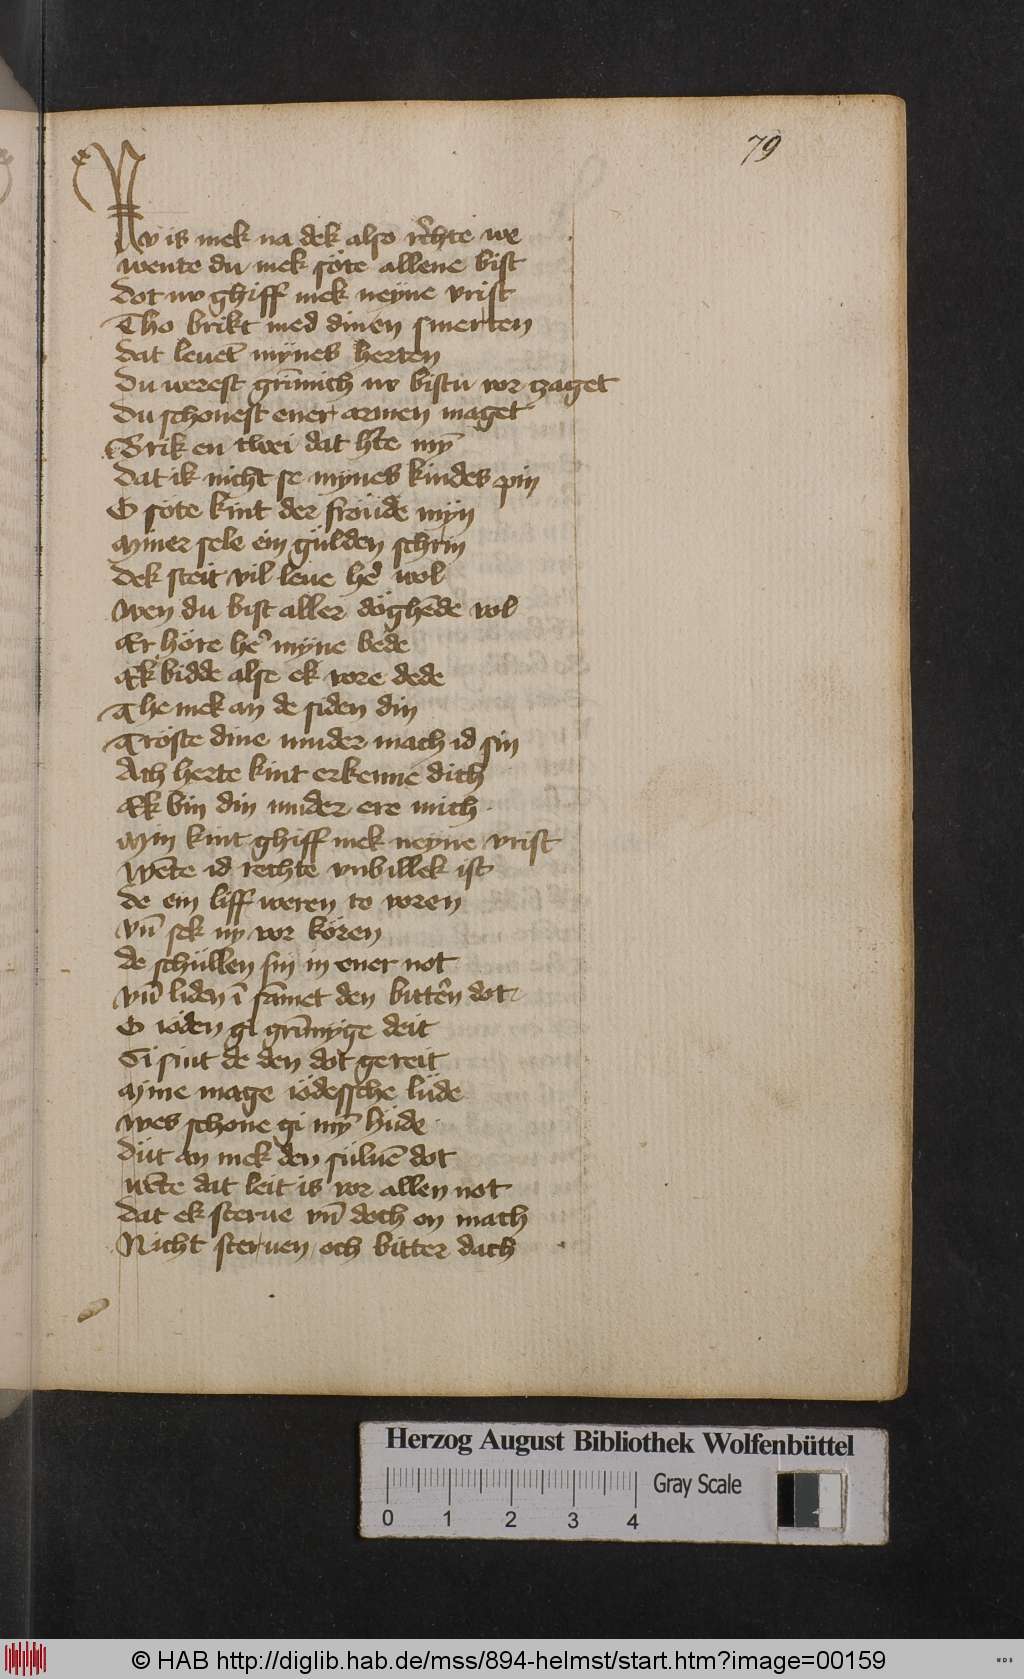 79
Nv is mek na dek also rechte we
wente du mek söte allene bist
dot nv ghiff mek neyne vrist
Tho brikt med dinen smerten
dat leuēt mynes herten
du werest grīmich nv bistu vor tzaget
du schonest ener armen maget
Brik en twei dat hte mȳ
dat ik nicht se mynes kindes pin
O söte kint der fröude myn
myner sele ein gülden schrin
dek steit vil leue he wol
wen du bist aller döghēde vol
Er höre he myne bede
Ek bidde alse ek vore dede
The mek an de siden din
Tröste dine muder mach id sin
Ach herte kint erkenne dich
Ek bin din muder ere mich
Min kint ghiff mek neyne vrist
wēte id rechte vnbillek ist
de ein liff weren to voren
vn̄ sek ny vor kören
de schüllen sin in ener not
vn̄ liden ī sāmet den bittēn dot
O iöden gi grīmyge deit
Gi sint de den dot gereit
Mine mage iödessche lüde
wes schone gi mȳ hüde
düt an mek den süluē dot
wēte dat leit is vor allen not
dat ek sterue vn̄ doch en mach
Nicht steruen och bitter dach
Herzog August Bibliothek Wolfenbüttel
Gray Scale
0 1 2 3 4
© HAB http://diglib.hab.de/mss/894-helmst/start.htm?image=00159